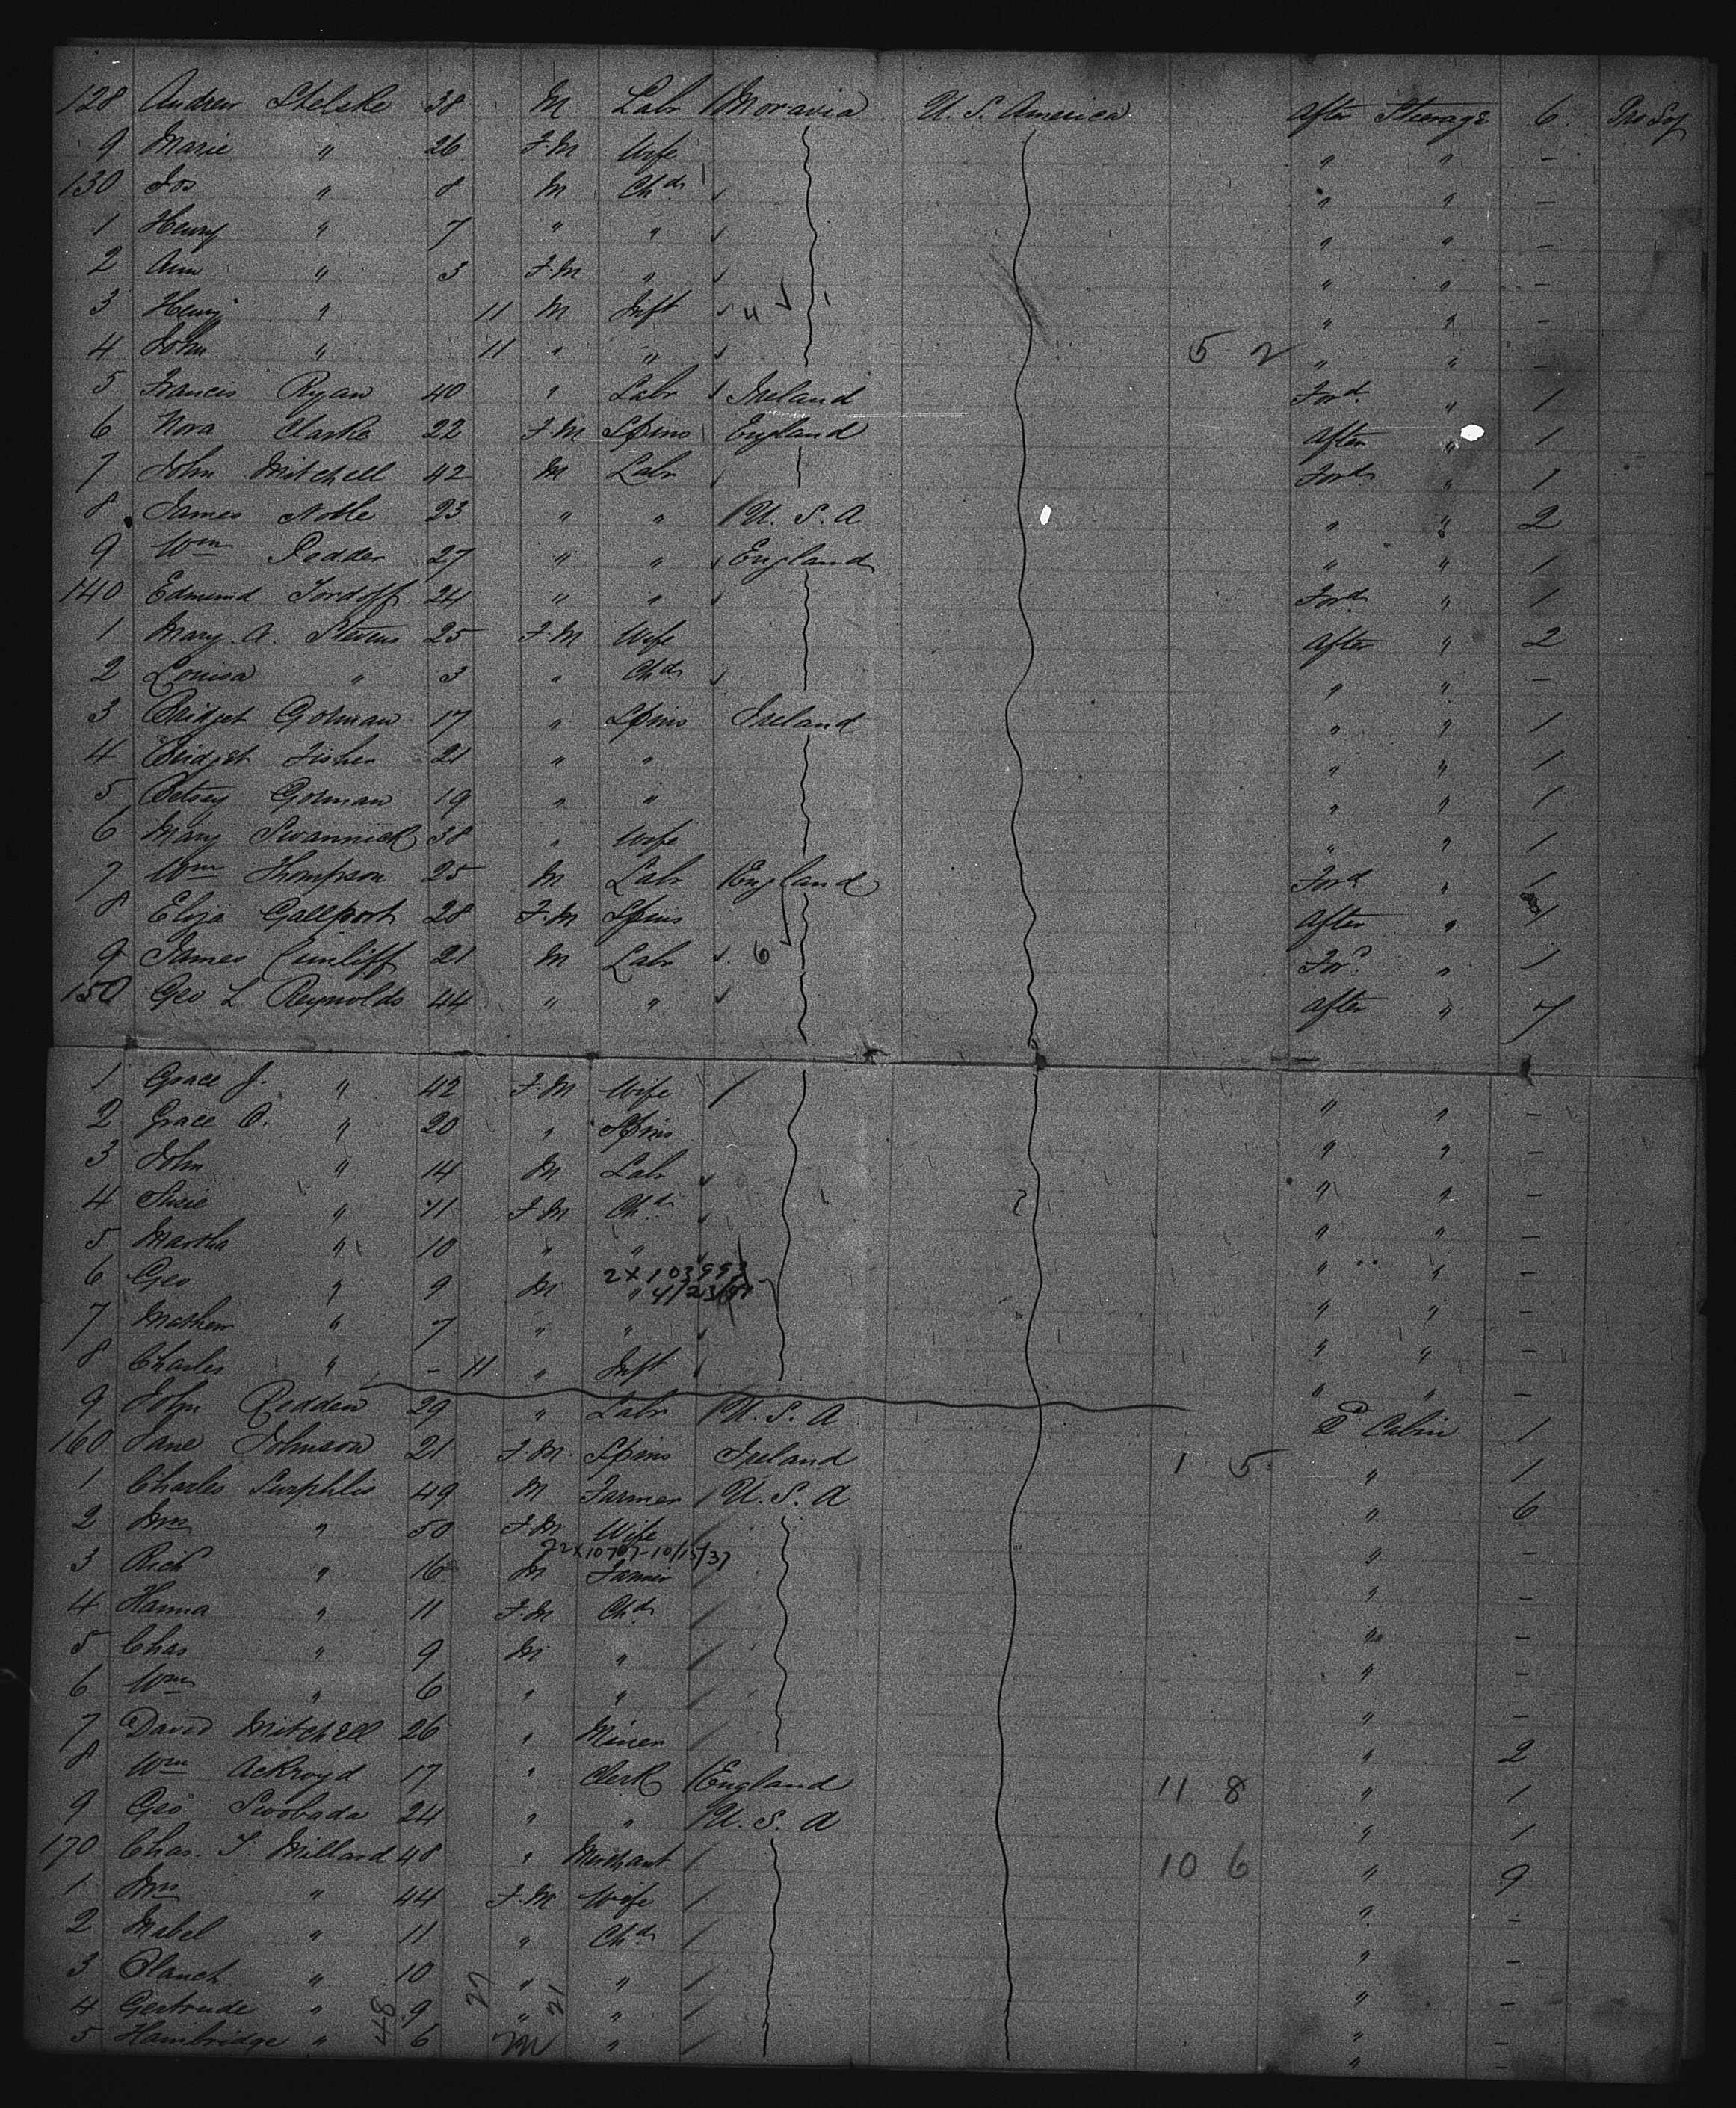 128 Andrew Stelske 38 M Labr Moravia U. S. America After Steerage 6
9 Marie " 26 F.M Wife " " –
130 Jos " 8 M Chd " " –
1 Henry " 7 " " " " –
2 Ann " 3 F.M " " " –
3 Henry " 11 M Inft 4 " " –
4 John " 11 " " 5 2 " " –
5 Frances Ryan 40 " Labr Ireland Ford " 1
6 Nora Clarke 22 F.M Spins England After " 1
7 John Mitchell 42 M Labr Ford " 1
8 James Noble 23 " " U. S. A " " 2
9 Wm Pedder 27 " " England " " 1
140 Edmund Tordoff 24 " " Ford " 1
1 Mary A. Stevens 25 F.M Wife After " 2
2 Louisa " 3 " Chd " " –
3 Bridget Gorman 17 " Spins Ireland " " 1
4 Bridget Fisher 21 " " " " 1
5 Betsey Gorman 19 " " " " 1
6 Mary Swannick 38 " Wife " " 1
7 Wm Thompson 25 M Labr England Ford " 1
8 Eliza Gallport 28 F.M Spins After " 1
9 James Cunliff 21 M Labr 6 For? " 1
150 Geo L Reynolds 44 " " After " 7
1 Grace J. " 42 F.M Wife " " –
2 Grace O. " 20 " Spins " " –
3 John " 14 M Labr " " –
4 Susie " 11 F.M Chd " " –
5 Martha " 10 " " " " –
2X103993
6 Geo " 9 M " " " –
7 Mathew " 7 " " " " –
8 Charles " – 11 " Inft " " –
9 John Redden 29 " Labr U. S. A 2d Cabin 1
160 Jane Johnson 21 F.M. Spins Ireland 1 5 " 1
1 Charles Surphlis 49 M Farmer U. S. A " 6
2 Mrs " 50 F.M Wife " –
22X10707-10/15/37
3 Rich " 16 M Farmer " –
4 Hanna " 11 F.M Chd " –
5 Chas " 9 M " " –
6 Wm " 6 " " " –
7 David Mitchell 26 " Miner " 2
8 Wm Ackroyd 17 " Clerk England 11 8 " 1
9 Geo Swobada 24 " " U. S. A " 1
170 Chas. T. Millard 48 " Merchant 10 6 " 9
1 Mrs " 44 F.M Wife " –
2 Mabel " 11 " Chd " –
3 Blanch " 10 " " " –
4 Gertrude " 9 " " " –
5 Hambridge " 6 M " " –
48 27 21